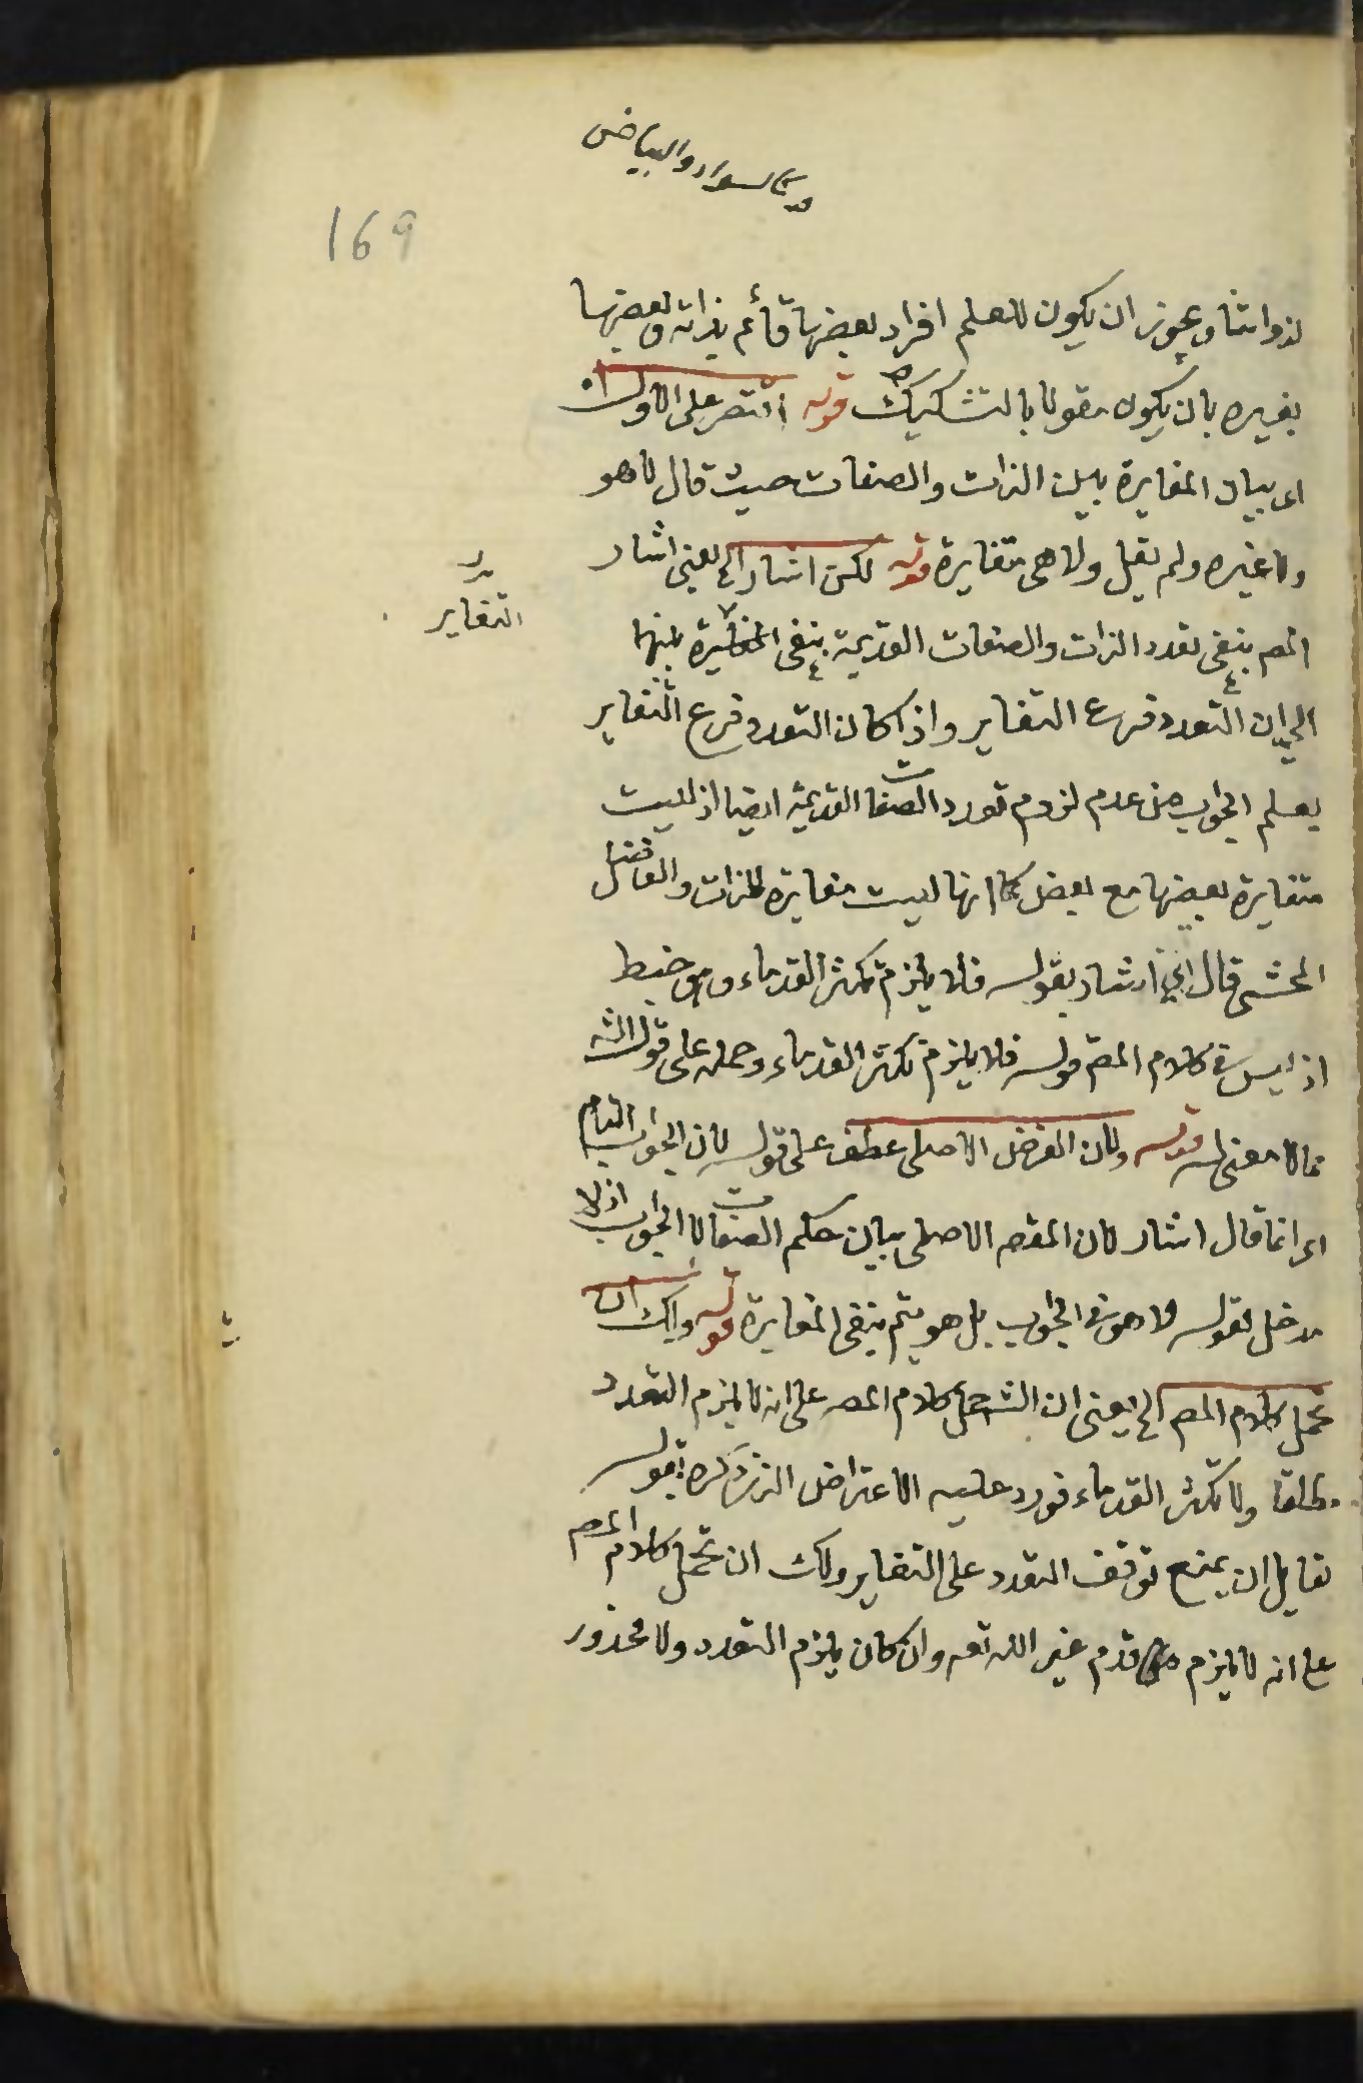 بين السواد والبياض
169
لذواتنا ويجوز ان يكون للعلم افراد بعضها قائم بذاته وبعضها
بغيره بان يكون مقولا بالتشكيك قوله اقتصر على الاول اه
اى بيان المغايرة بين الذات والصفات حيث قال لا هو
ولا غيره ولم يقل ولا هى متغايرة قوله لكن اشار الخ يعنى اشار
المصـ بنفى تعدد الذات والصفات القديمة بنفى المغايرة بينهما
بدل
التغاير
الى ان التعدد فرع التغاير واذا كان التعدد فرع التغاير
يعلم الجواب من عدم لزوم تعدد الصفات القديمة ايضا اذ ليست
متغايرة بعضها مع بعض كما انها ليست مغايرة للذات والفاضل
المحشى قال اى اشار بقوله فلا يلزم تكثر القدماء وهو خبط
اذ ليس فى كلام المصـ قوله فلا يلزم تكثر القدماء وحمله على قول الشـ
مما لا معنى له قوله ولان الغرض الاصلى عطف على قوله لان الجواب التام
اى انما قال اشار لان المقصـ الاصلى بيان حكم الصفات لا الجواب اذ لا
مدخل لقوله لا هو فى الجواب بل هو يتم بنفى المغايرة قوله ولك ان
تحمل كلام المصـ الخ يعنى ان الشـ حمل كلام المصـ على انه لا يلزم التعدد
مطلقا ولا تكثر القدماء فورد عليه الاعتراض الذى ذكره بقوله
لقايل ان يمنع توقف التعدد على التغاير ولك ان تحمل كلام المصـ
على انه لا يلزم قدم غير الله تعـ وان كان يلزم التعدد ولا محذور